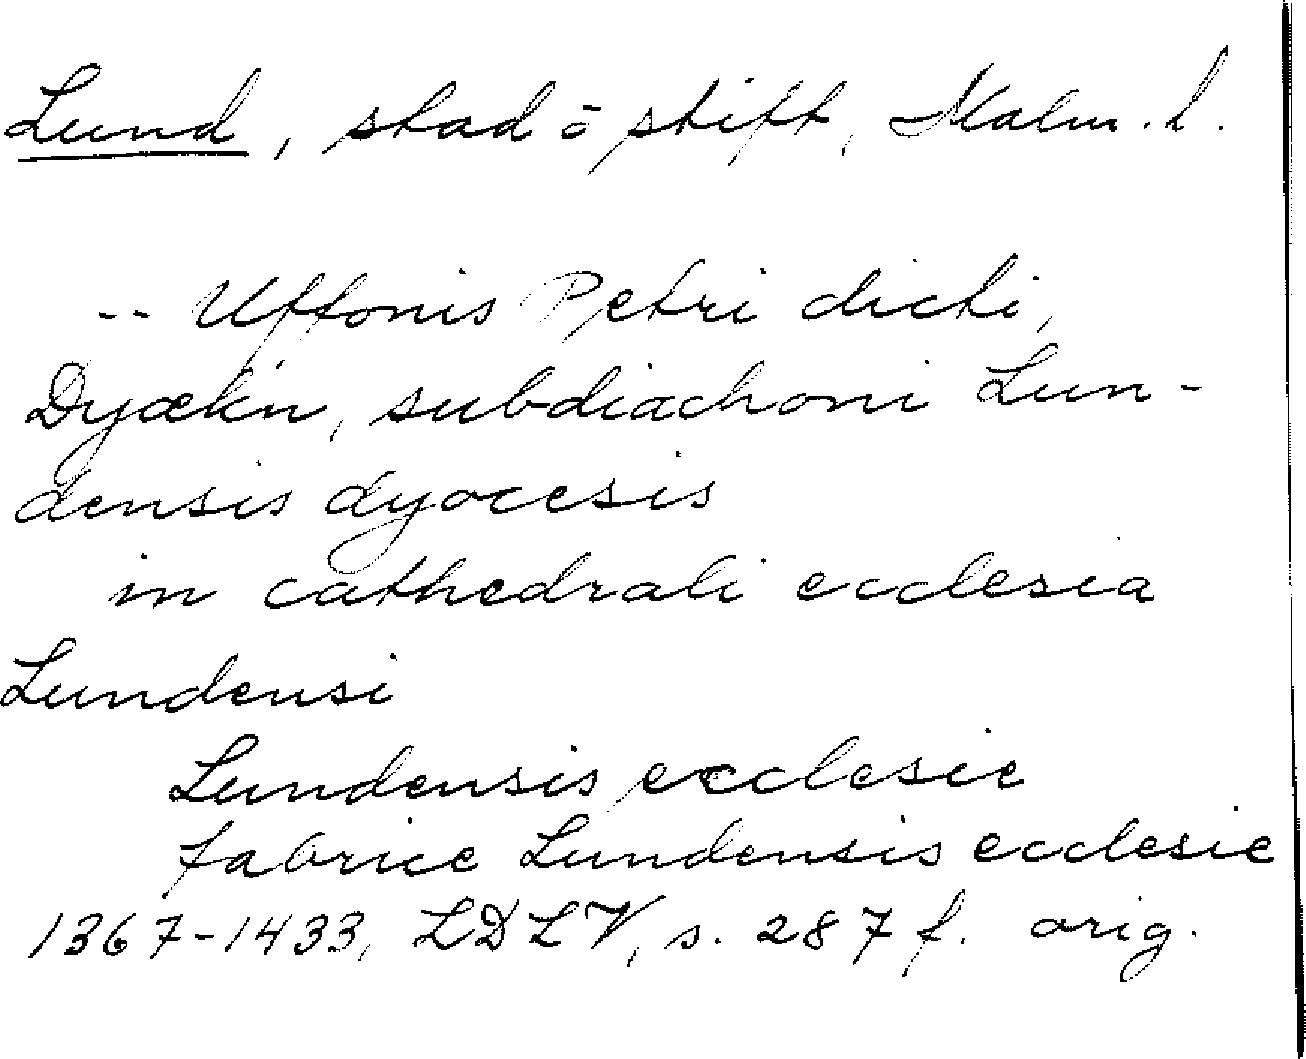 Lund, stad o stift, Malm. l.
-- Uffonis Petri dicti,
Dyækn, subdiachoni Lun-
densis dyocesis
in cathedrali ecclesia
Lundensi
Lundensis ecclesie
fabrice Lundensis ecclesie
1367-1433, LDLV, s. 287 f. orig.